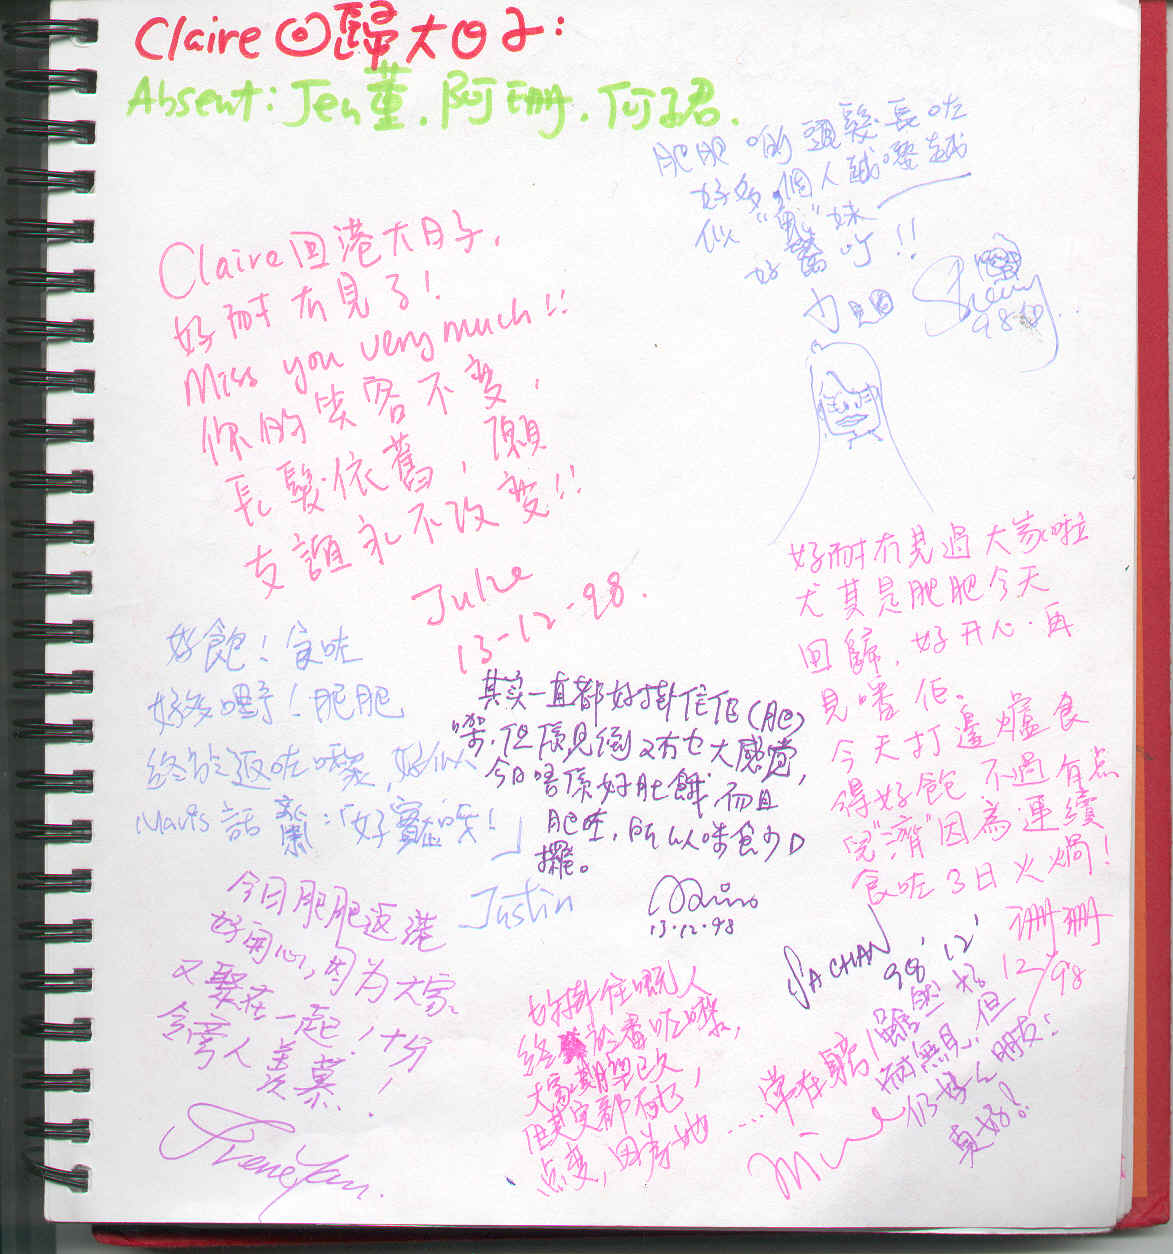 Claire回歸大日子:
Absent: Jen董. 阿珊. 何君.
肥肥 啲 頭髮長咗
好多, 個人越嚟越
似"鬼"妹
好驚吖!!
Claire回港大日子,
好耐冇見了!
Miss you very much!!
你的笑容不變,
長髮依舊, 願
友誼永不改變!!
Julie
13-12-98.
好耐冇見過大家啦
尤其是肥肥今天
回歸, 好开心. 再
見囉佢。
今天打邊爐食
得好飽, 不過有点
兒"濟"因為連續
食咗3日火煱!
珊珊
12/98
好飽! 食咗
好多嘢! 肥肥
終於返咗嚟, 好似
Mavis話齋:「好實哦!」
Justin
其实一直都好掛住佢(肥)
㗎, 但係見倒又冇乜大感觉,
今日唔係好肚餓, 而且
肥咗, 所以咪食少D
擺。
13.12.98
今日肥肥返港
好開心, 因为大家
又聚在一起! 十分
令旁人羨慕!
Irene Yau.
好掛住嘅人
終於番咗嚟,
大家期望已久
但其实都冇乜
点变, 因為她....常在騙!
SACHAN
98'12'
雖然好
耐無見, 但
仍好好朋友!
真好!